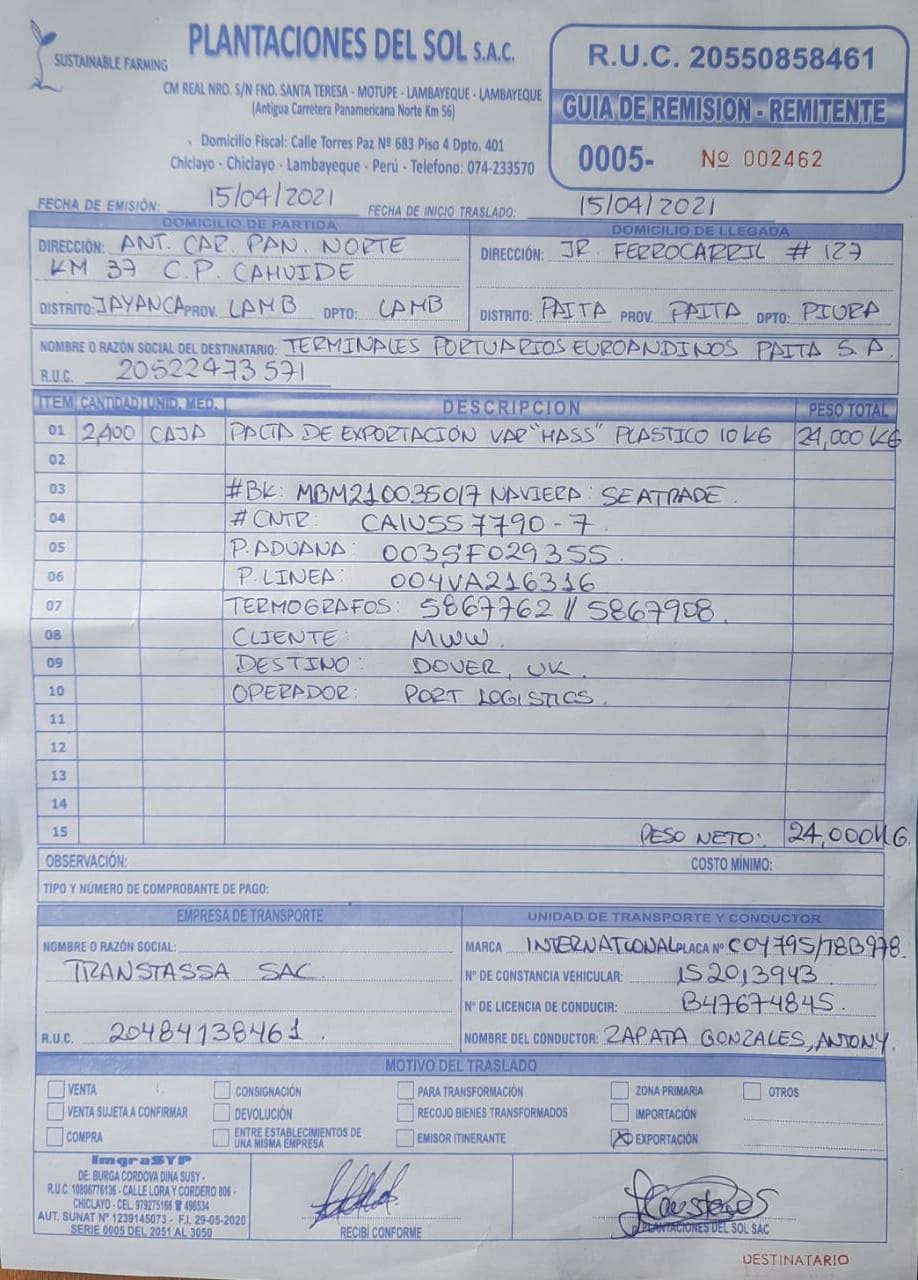 SUSTAINABLE FARMING
PLANTACIONES DEL SOL S.A.C.
CM REAL NRO. S/N FND. SANTA TERESA - MOTUPE - LAMBAYEQUE - LAMBAYEQUE
(Antigua Carretera Panamericana Norte Km 56)
Domicilio Fiscal: Calle Torres Paz Nº 683 Piso 4 Dpto. 401
Chiclayo - Chiclayo - Lambayeque - Perú - Telefono: 074-233570
R.U.C. 20550858461
GUIA DE REMISION - REMITENTE
0005- Nº 002462
FECHA DE EMISIÓN: 15/04/2021 FECHA DE INICIO TRASLADO: 15/04/2021
DOMICILIO DE PARTIDA
DIRECCIÓN: ANT. CAR. PAN. NORTE
KM 37 C.P. CAHUIDE
DISTRITO: JAYANCA PROV. LAMB DPTO: LAMB
DOMICILIO DE LLEGADA
DIRECCIÓN: JR. FERROCARRIL # 127
DISTRITO: PAITA PROV. PAITA DPTO: PIURA
NOMBRE O RAZÓN SOCIAL DEL DESTINATARIO: TERMINALES PORTUARIOS EUROANDINOS PAITA S.A.
R.U.C. 20522473571
ITEM CANTIDAD UNID. MED. DESCRIPCION PESO TOTAL
01 2,400 CAJA PALTA DE EXPORTACIÓN VAR "HASS" PLASTICO 10 KG 24,000 KG
02
03 #BK: MBM210035017 NAVIERA: SEATRADE.
04 #CNTR: CAIU557790-7.
05 P.ADUANA: 003SF029355.
06 P.LINEA: 004VA216316
07 TERMOGRAFOS: 5867762 // 5867908.
08 CLIENTE: MWW.
09 DESTINO: DOVER, UK.
10 OPERADOR: PORT LOGISTICS.
11
12
13
14
15 PESO NETO: 24,000KG.
OBSERVACIÓN: COSTO MÍNIMO:
TIPO Y NÚMERO DE COMPROBANTE DE PAGO:
EMPRESA DE TRANSPORTE
NOMBRE O RAZÓN SOCIAL:
TRANSTASSA SAC.
R.U.C. 20484138461.
UNIDAD DE TRANSPORTE Y CONDUCTOR
MARCA INTERNATIONAL PLACA Nº COY795/T8B978.
Nº DE CONSTANCIA VEHICULAR: 152013943
Nº DE LICENCIA DE CONDUCIR: B47674845.
NOMBRE DEL CONDUCTOR: ZAPATA GONZALES, ANTONY.
MOTIVO DEL TRASLADO
VENTA CONSIGNACIÓN PARA TRANSFORMACIÓN ZONA PRIMARIA OTROS
VENTA SUJETA A CONFIRMAR DEVOLUCIÓN RECOJO BIENES TRANSFORMADOS IMPORTACIÓN
COMPRA ENTRE ESTABLECIMIENTOS DE EMISOR ITINERANTE X EXPORTACIÓN
UNA MISMA EMPRESA
ImgraSYP
DE: BURGA CORDOVA DINA SUSY -
R.U.C. 10806776136 - CALLE LORA Y CORDERO 806 -
CHICLAYO - CEL. 979275166 ☎ 496534
AUT. SUNAT Nº 1239145073 - F.I. 29-05-2020
SERIE 0005 DEL 2051 AL 3050
RECIBÍ CONFORME
PLANTACIONES DEL SOL SAC
DESTINATARIO